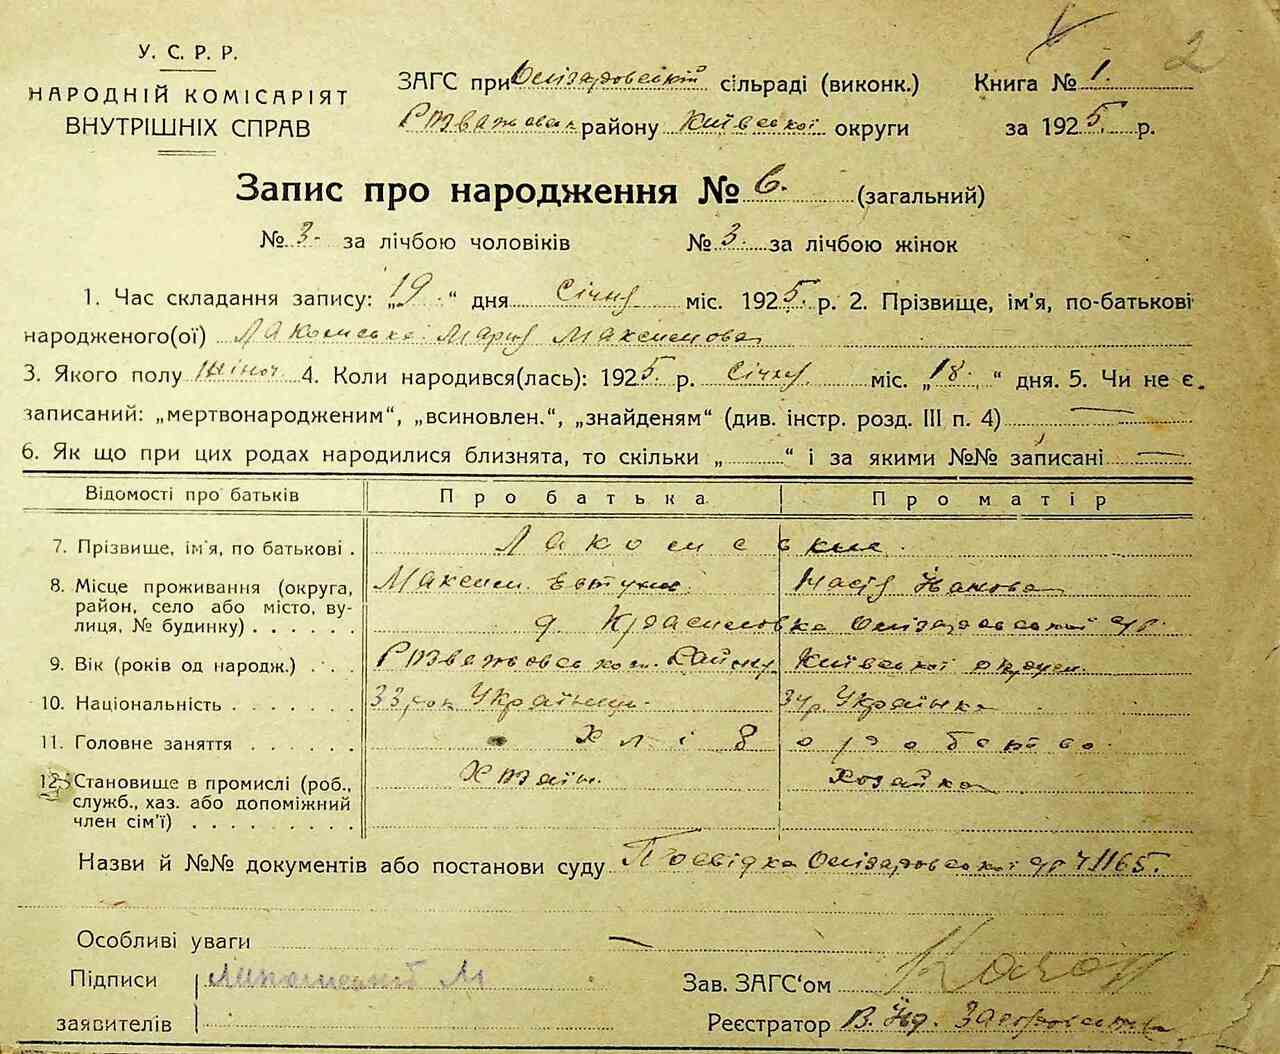 2
У. С. Р. Р.
НАРОДНІЙ КОМІСАРІЯТ
ВНУТРІШНІХ СПРАВ
ЗАГС при Олізаровській сільраді (виконк.)
Розважовськ району Київської округи
Книга № 1.
за 1925. р.
Запис про народження № 6. (загальний)
№ 3- за лічбою чоловіків № 3. за лічбою жінок
1. Час складання запису: „19.“ дня Січня міс. 1925. р. 2. Прізвище, ім'я, по-батькові
народженого(ої) Лакомська Марія Максимова
3. Якого полу жіноч 4. Коли народився(лась): 1925. р. Січня міс. „18.“ дня. 5. Чи не є
записаний: „мертвонародженим“, „всиновлен.“, „знайденям“ (див. інстр. розд. III п. 4) —
6. Як що при цих родах народилися близнята, то скільки „ “ і за якими №№ записані —
Відомості про батьків Про батька Про матір
7. Прізвище, ім'я, по батькові . Лакомськие.
8. Місце проживання (округа, Максим Евтухов Настя Іванова
район, село або місто, ву-
лиця, № будинку) . . . . . . Красиловка Олізаровської с/р.
9. Вік (років од народж.) . . . Розважовськом. Району Київської округи.
10. Національність . . . . . . . 33 рок Українець. 34 р. Українка
11. Головне заняття . . . . . . Хліборобство.
12. Становище в промислі (роб., Хозяїн. хозяйка
служб., хаз. або допоміжний
член сім'ї) . . . . . . . . .
Назви й №№ документів або постанови суду Посвідка Олізаровської с/р № 65.
Особливі уваги —
Підписи Лакомський М
заявителів
Зав. ЗАГС‘ом
Реєстратор В.